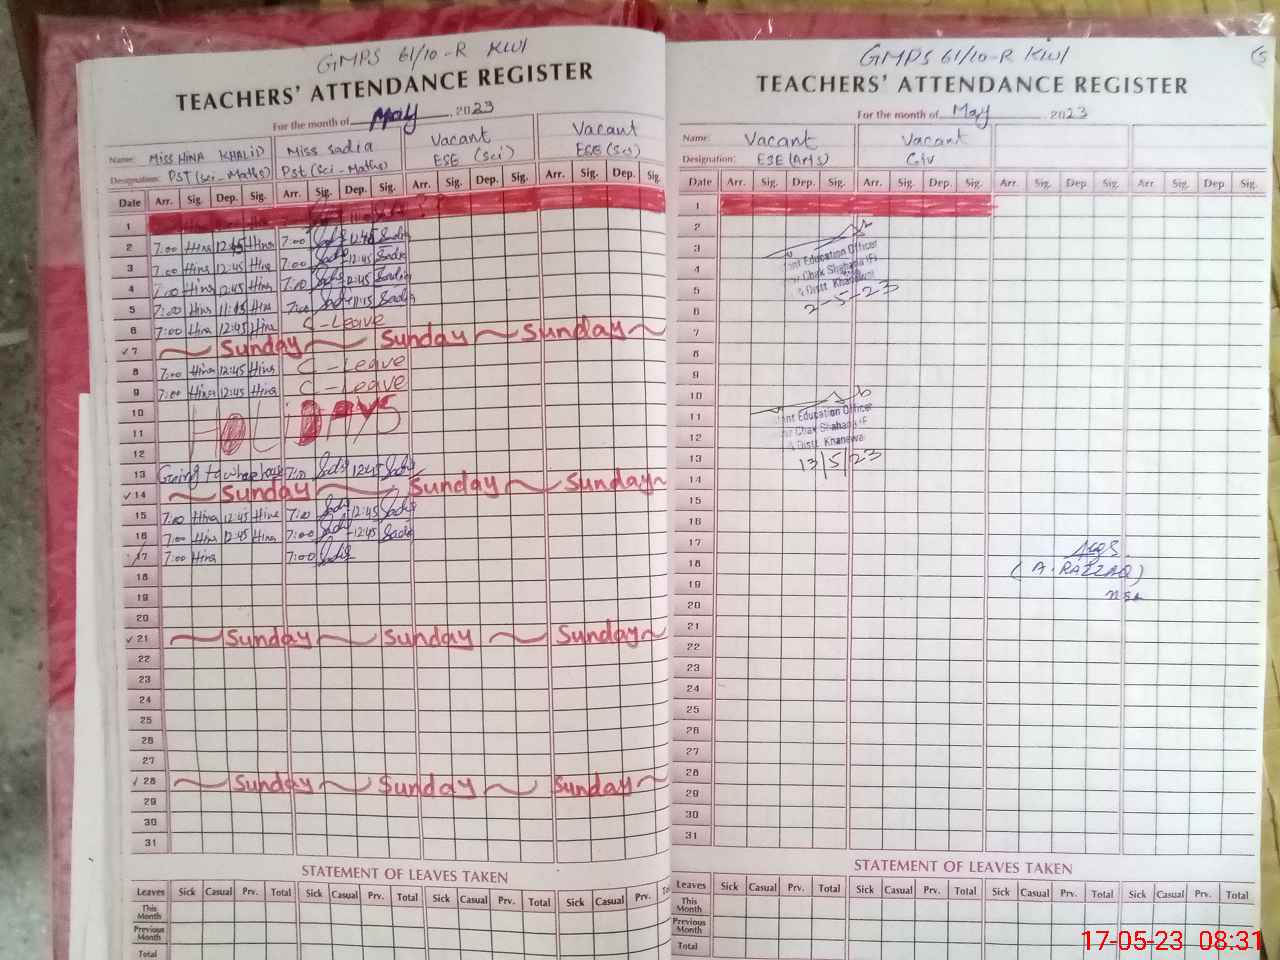 GMPS 61/10-R KWI
TEACHERS' ATTENDANCE REGISTER
For the month of May 2023
Name: Miss Hina Khalid Miss Sadia Vacant Vacant
Designation: PST (Sci-Maths) Pst (Sci-Maths) ESE (Sci) ESE (Sci)
Date Arr. Sig. Dep. Sig. Arr. Sig. Dep. Sig. Arr. Sig. Dep. Sig. Arr. Sig. Dep. Sig.
1
2 7:00 Hina 12:45 Hina 7:00 Sadia 12:45 Sadia
3 7:00 Hina 12:45 Hina 7:00 Sadia 12:45 Sadia
4 7:00 Hina 12:45 Hina 7:00 Sadia 12:45 Sadia
5 7:00 Hina 11:15 Hina 7:00 Sadia 11:15 Sadia
6 7:00 Hina 12:45 Hina C-Leave
7 Sunday Sunday Sunday
8 7:00 Hina 12:45 Hina C-Leave
9 7:00 Hina 12:45 Hina C-Leave
10
11 HOLiDAYS
12
13 Going to 7:00 Sadia 12:45 Sadia
14 Sunday Sunday Sunday
15 7:00 Hina 12:45 Hina 7:00 Sadia 12:45 Sadia
16 7:00 Hina 12:45 Hina 7:00 Sadia 12:45 Sadia
17 7:00 Hina 7:00 Sadia
18
19
20
21 Sunday Sunday Sunday
22
23
24
25
26
27
28 Sunday Sunday Sunday
29
30
31
STATEMENT OF LEAVES TAKEN
Leaves Sick Casual Prv. Total Sick Casual Prv. Total Sick Casual Prv. Total Sick Casual Prv.
This Month
Previous Month
Total
GMPS 61/10-R KWI
TEACHERS' ATTENDANCE REGISTER
For the month of May 2023
Name: Vacant Vacant
Designation: ESE (Arts)
Date Arr. Sig. Dep. Sig. Arr. Sig. Dep. Sig. Arr. Sig. Dep. Sig. Arr. Sig. Dep. Sig.
1
2
3 Education Officer
4 Chak Shahana (F)
5 Distt. Khanewal
2-5-23
6
7
8
9
10
11 Education Officer
12 Chak Shahana (F)
Distt. Khanewal
13 13/5/23
14
15
16
17
18 (A. RAZZAQ)
19
20
21
22
23
24
25
26
27
28
29
30
31
STATEMENT OF LEAVES TAKEN
Leaves Sick Casual Prv. Total Sick Casual Prv. Total Sick Casual Prv. Total Sick Casual Prv. Total
This Month
Previous Month
Total
17-05-23 08:31